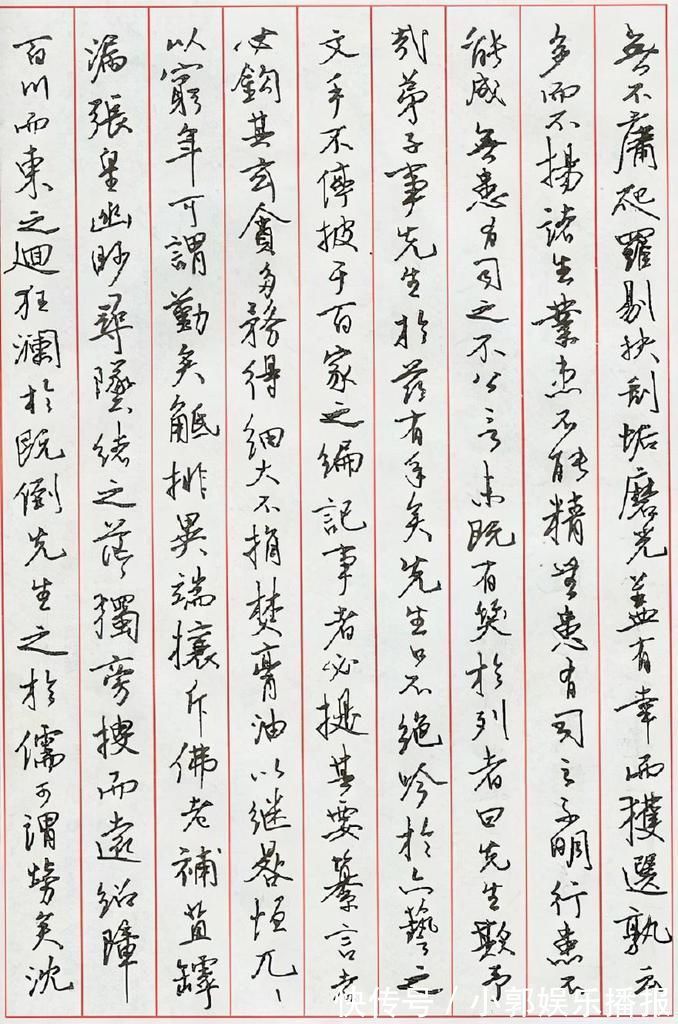 無不庸爬羅剔抉刮垢磨光蓋有幸而獲選孰云
多而不揚諸生業患不能精無患有司之不明行患不
能成無患有司之不公言未既有笑於列者曰先生欺予
哉弟子事先生於茲有年矣先生口不絕吟於六藝之
文手不停披于百家之編記事者必提其要纂言者
必鈎其玄貪多務得細大不捐焚膏油以继晷恒兀〻
以窮年可謂勤矣觝排異端攘斥佛老補苴罅
漏張皇幽眇尋墜緒之茫獨旁搜而遠紹障
百川而東之迴狂瀾於既倒先生之於儒可謂勞矣沈
快传号 / 小郭娱乐播报